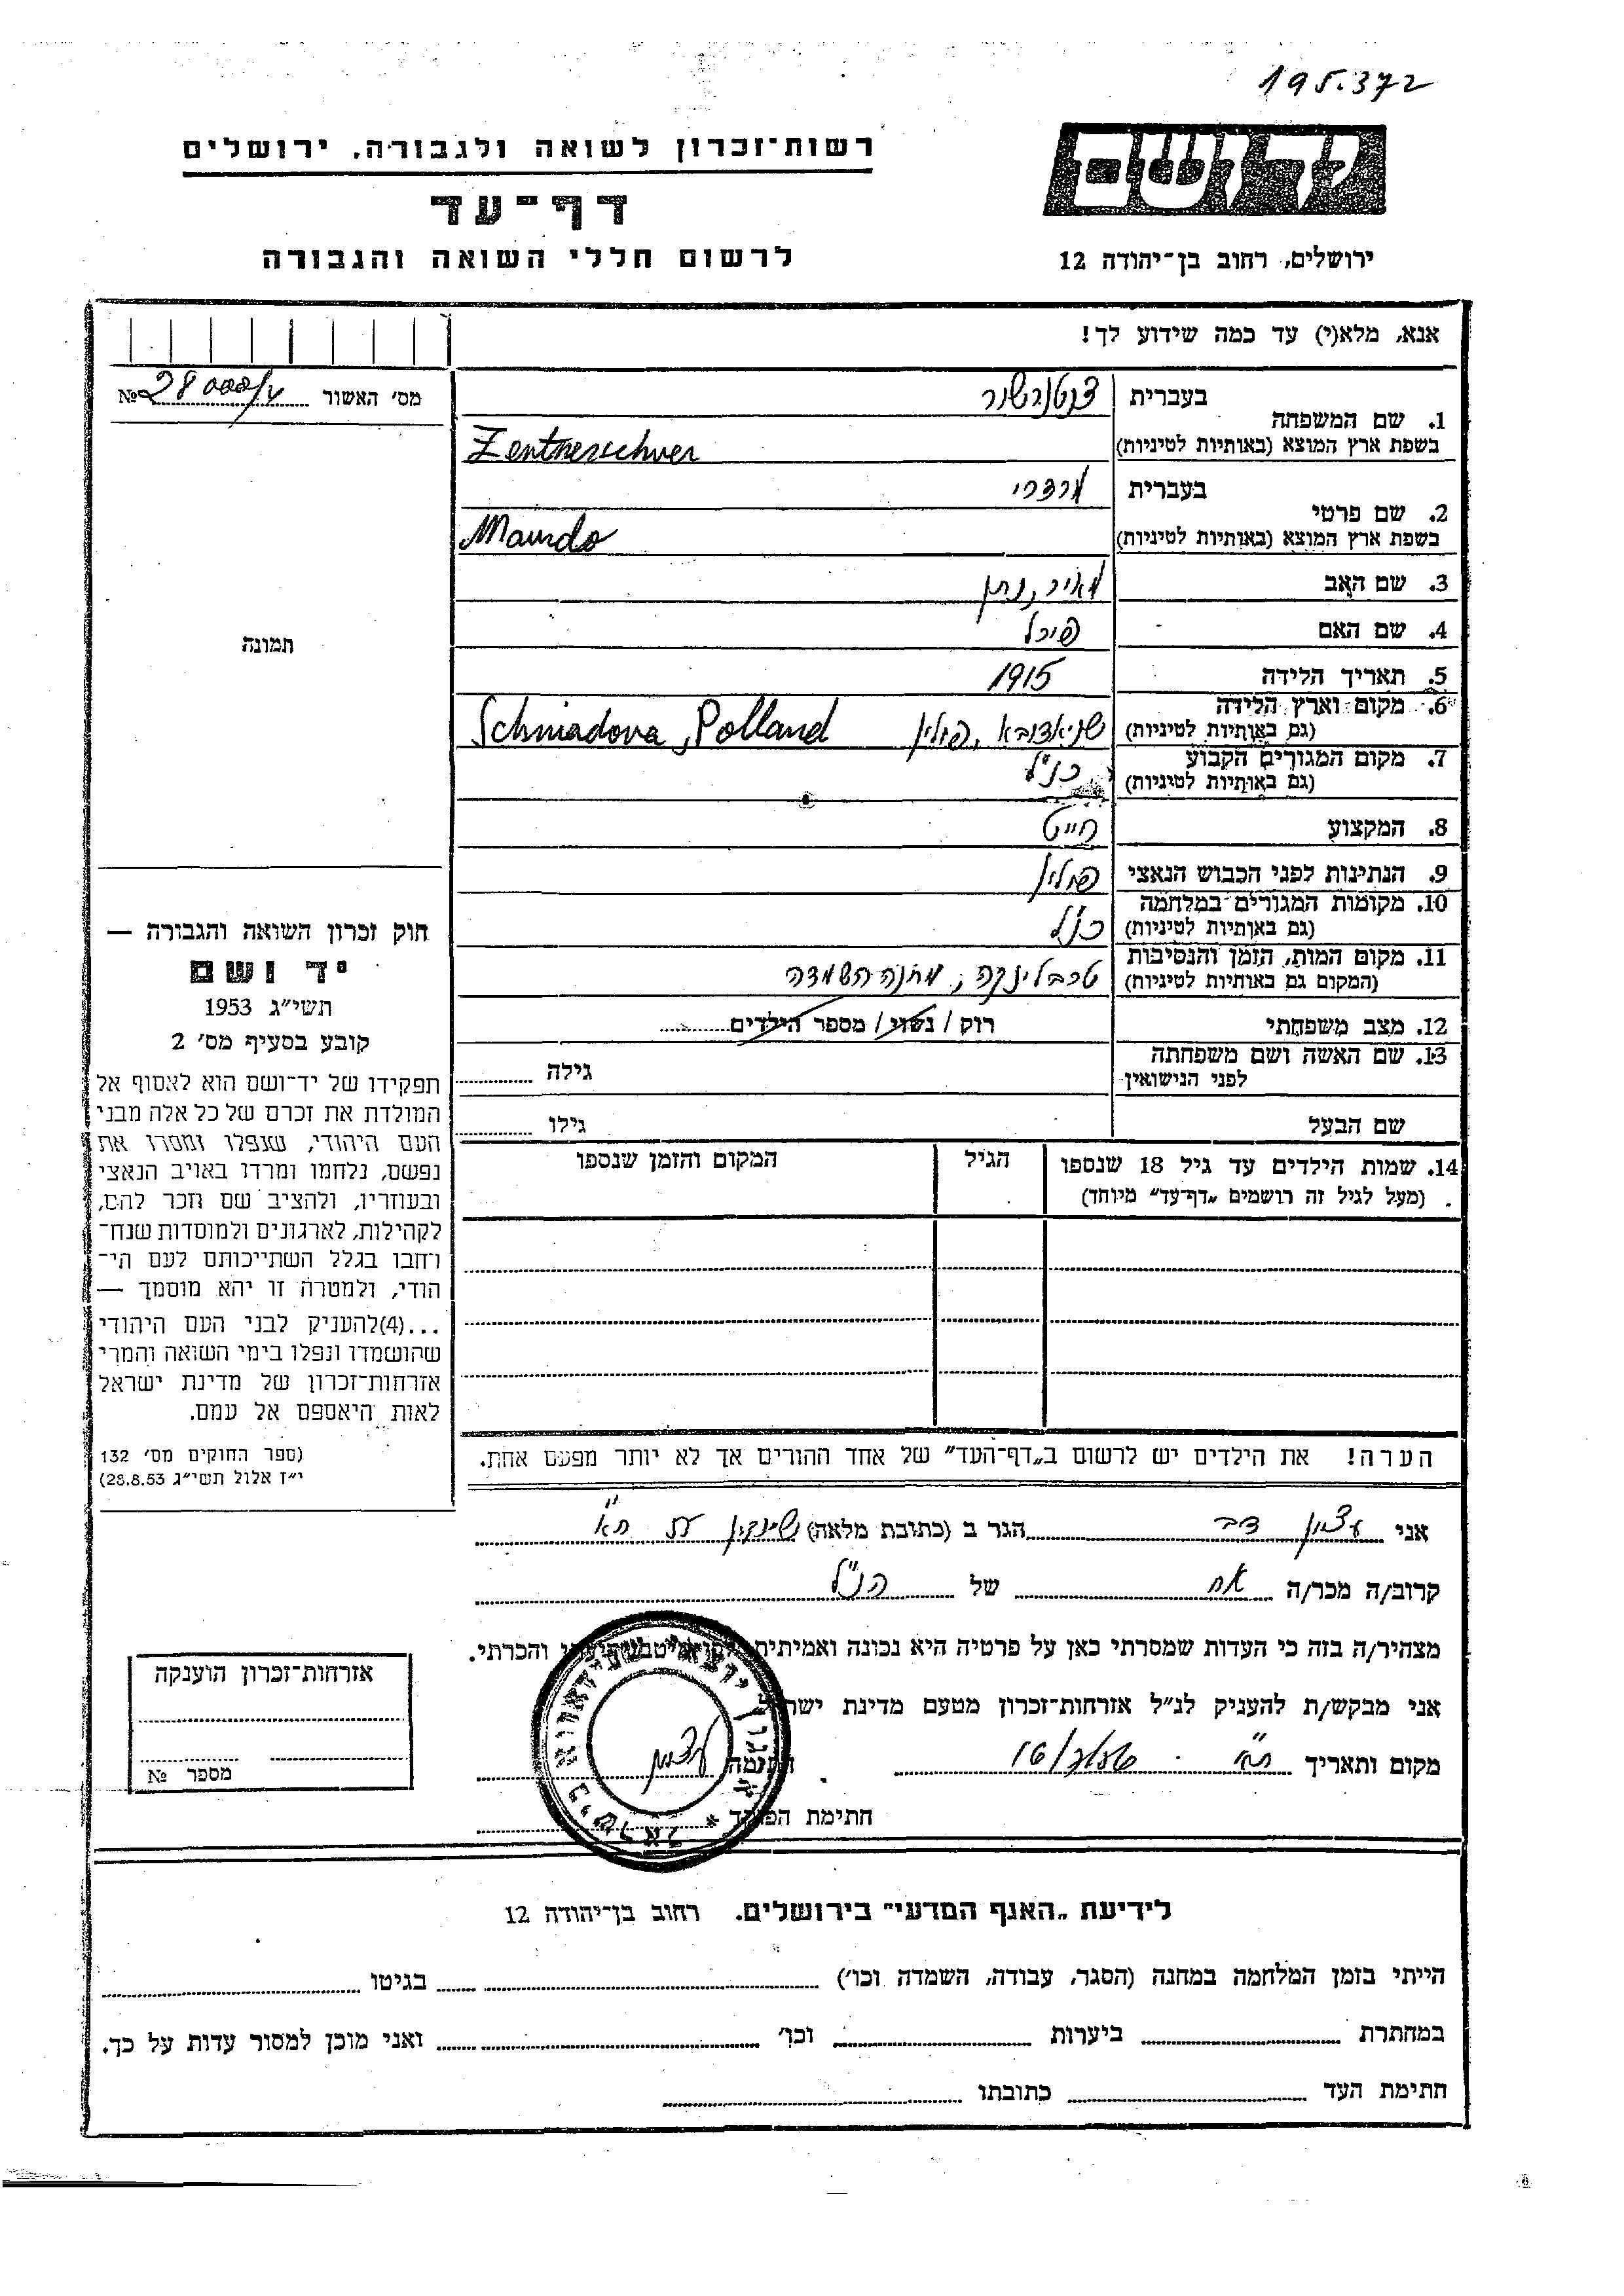 195.372
יד ושם
רשות־זכרון לשואה ולגבורה, ירושלים
דף־עד
לרשום חללי השואה והגבורה
ירושלים, רחוב בן־יהודה 12
אנא, מלא(י) עד כמה שידוע לך!
מס׳ האשור № 28000/
1. שם המשפחה
בעברית צנטנרשור
בשפת ארץ המוצא (באותיות לטיניות) Zentnerschver
2. שם פרטי
בעברית מרדכי
בשפת ארץ המוצא (באותיות לטיניות)
3. שם האב מאיר, נתן
4. שם האם
5. תאריך הלידה 1915
6. מקום וארץ הלידה
(גם באותיות לטיניות) שניאדובא, פולין Schniadova, Polland
7. מקום המגורים הקבוע
(גם באותיות לטיניות) כנ״ל
8. המקצוע חייט
9. הנתינות לפני הכבוש הנאצי פולין
10. מקומות המגורים במלחמה
(גם באותיות לטיניות) כנ״ל
11. מקום המות, הזמן והנסיבות
(המקום גם באותיות לטיניות) טרבלינקה, מחנה השמדה
12. מצב משפחתי רוק / נשוי / מספר הילדים
13. שם האשה ושם משפחתה
לפני הנישואין גילה
שם הבעל גילו
14. שמות הילדים עד גיל 18 שנספו
(מעל לגיל זה רושמים „דף־עד״ מיוחד)
הגיל
המקום והזמן שנספו
הערה! את הילדים יש לרשום ב„דף־העד״ של אחד ההורים אך לא יותר מפעם אחת.
תמונה
חוק זכרון השואה והגבורה —
יד ושם
תשי״ג 1953
קובע בסעיף מס׳ 2
תפקידו של יד־ושם הוא לאסוף אל
המולדת את זכרם של כל אלה מבני
העם היהודי, שנפלו ומסרו את
נפשם, נלחמו ומרדו באויב הנאצי
ובעוזריו, ולהציב שם וזכר להם,
לקהילות, לארגונים ולמוסדות שנח־
רחבו בגלל השתייכותם לעם הי־
הודי, ולמטרה זו יהא מוסמך —
...(4)להעניק לבני העם היהודי
שהושמדו ונפלו בימי השואה והמרי
אזרחות־זכרון של מדינת ישראל
לאות היאספם אל עמם.
(ספר החוקים מס׳ 132
י״ז אלול תשי״ג 28.8.53)
אני עצמון דב הגר ב (כתובת מלאה) שינקין ת״א
קרוב/ה מכר/ה אח של הנ״ל
מצהיר/ה בזה כי העדות שמסרתי כאן על פרטיה היא נכונה ואמיתית והכרתי.
אני מבקש/ת להעניק לנ״ל אזרחות־זכרון מטעם מדינת ישראל
מקום ותאריך ת״א חתימה עצמון
חתימת הפוקד
ארגון יוצאי שניאדובא בישראל *
אזרחות־זכרון הוענקה
מספר №
לידיעת „האגף המדעי״ בירושלים. רחוב בן־יהודה 12
הייתי בזמן המלחמה במחנה (הסגר, עבודה, השמדה וכו׳) בגיטו
במחתרת ביערות וכו׳ ואני מוכן למסור עדות על כך.
חתימת העד כתובתו